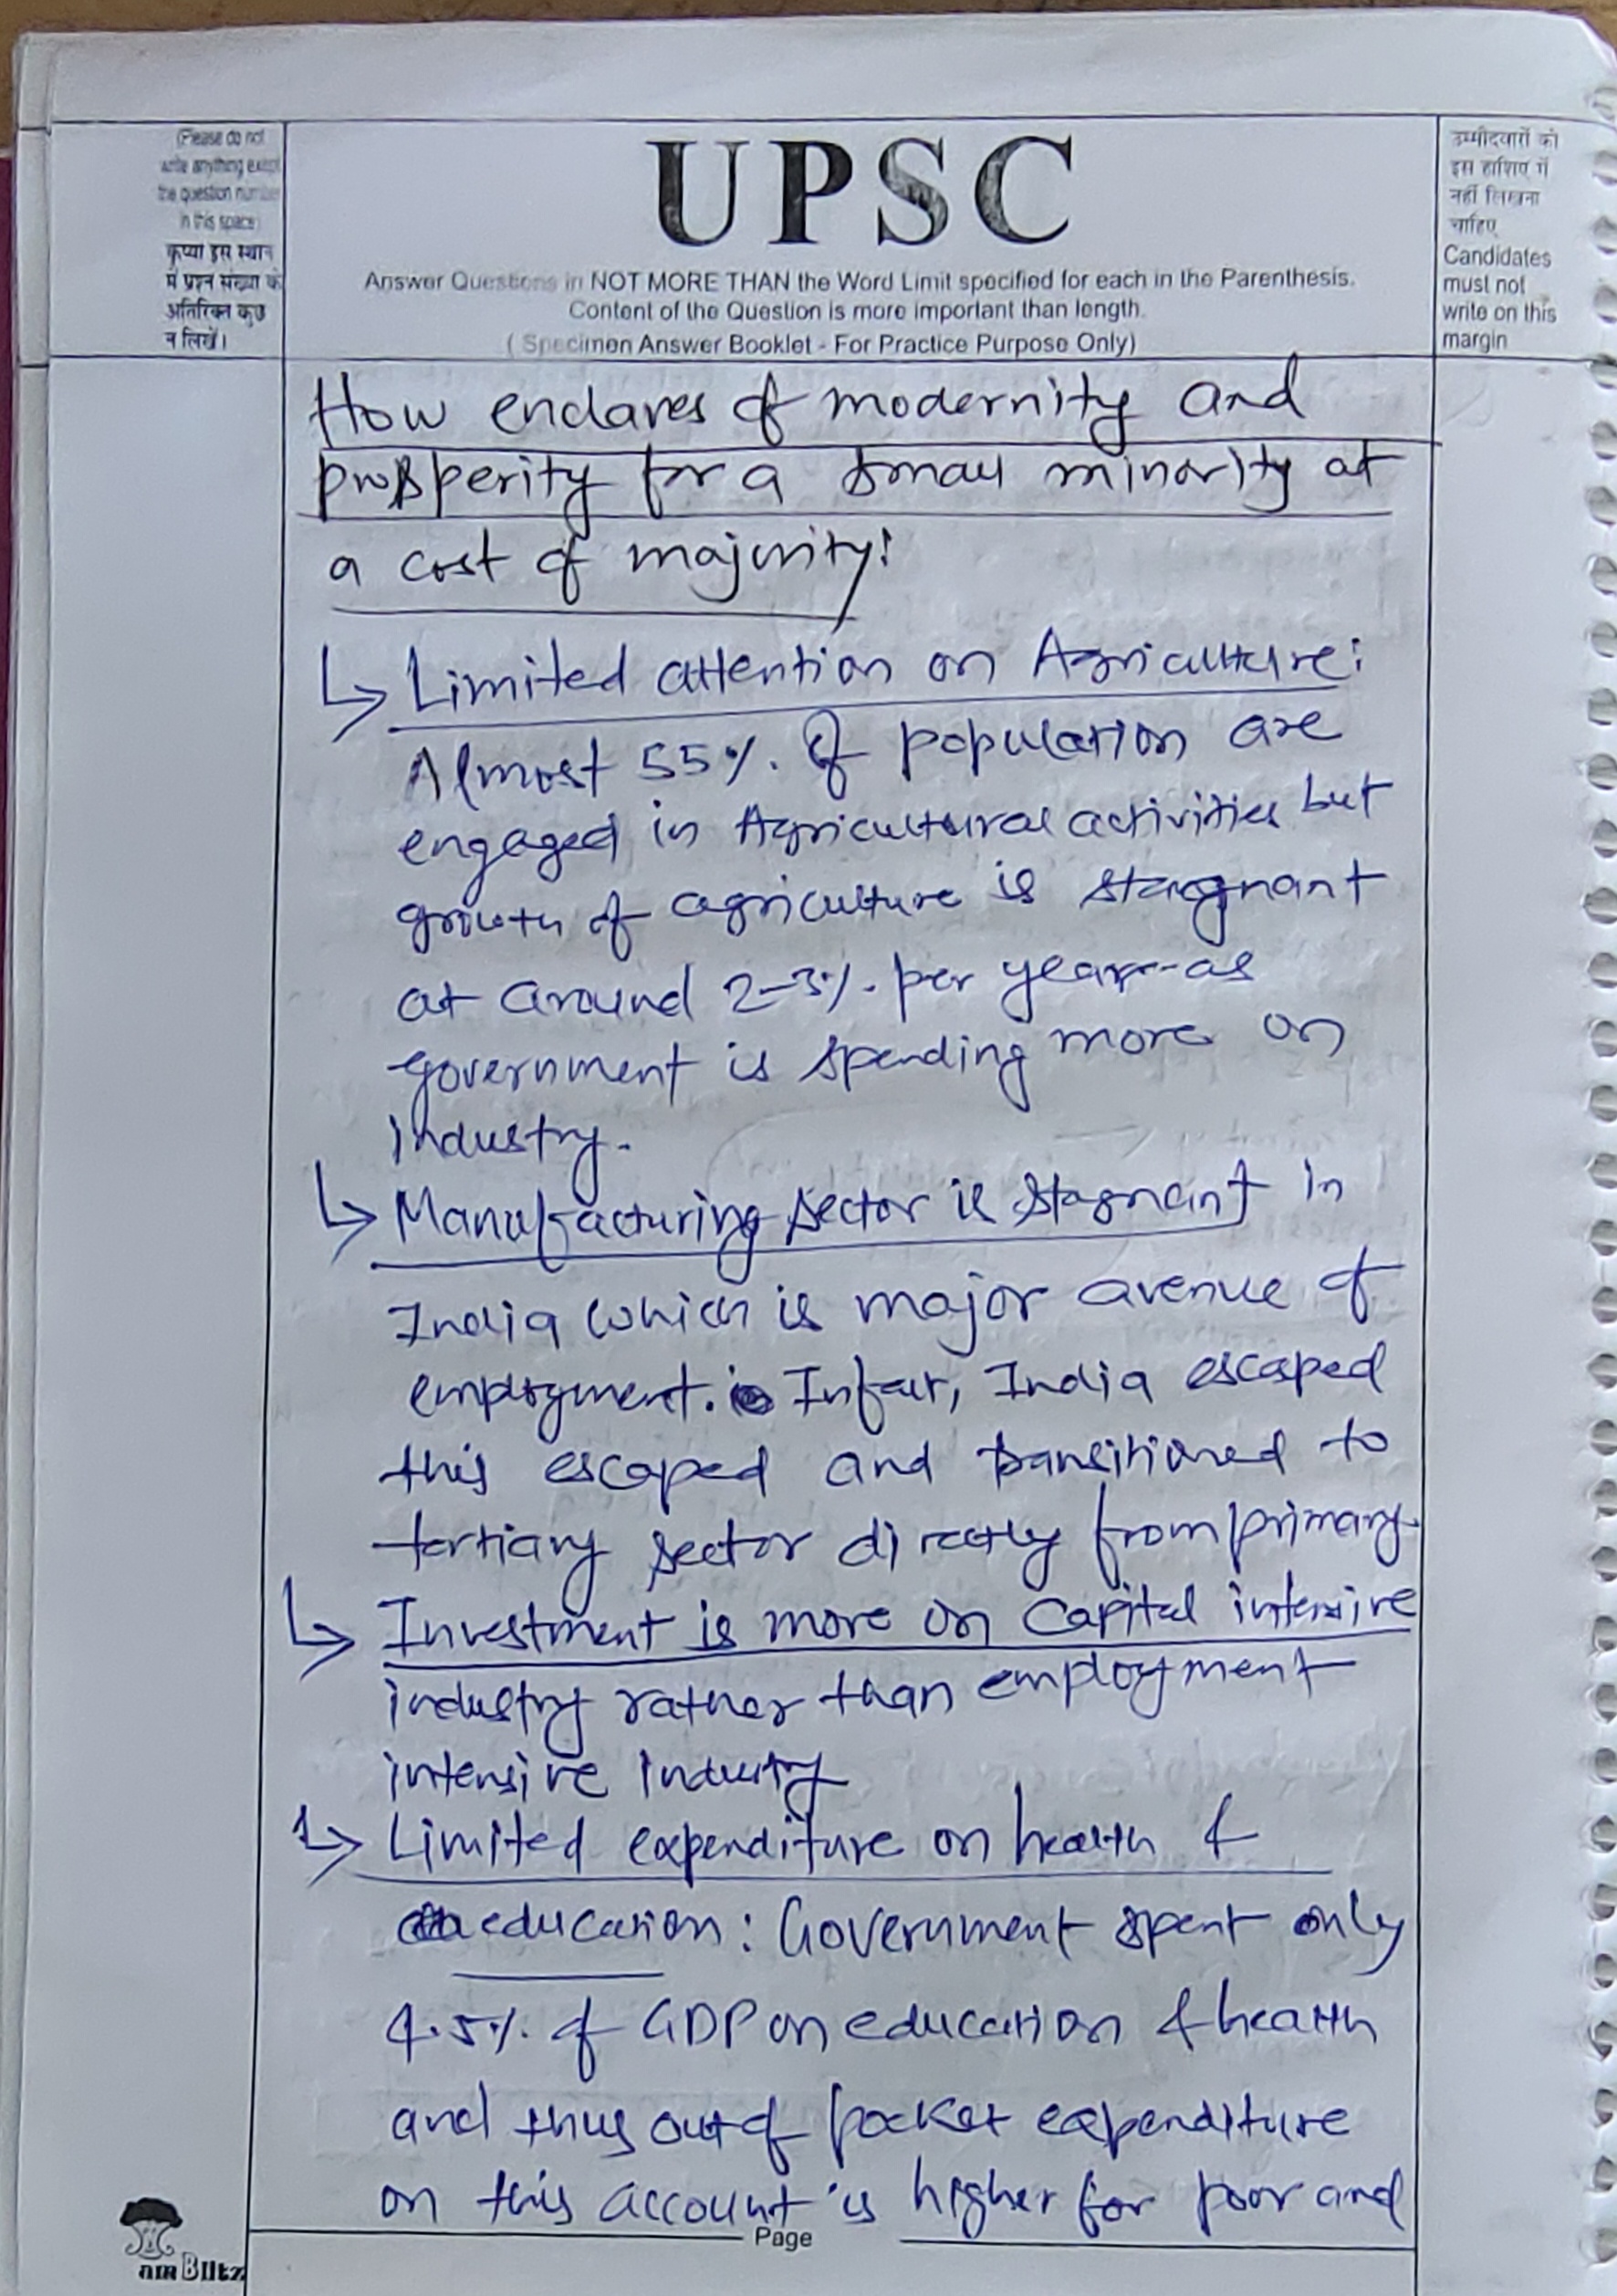 (Please do not
write anything except
the question number
in this space)
कृप्या इस स्थान
में प्रश्न संख्या के
अतिरिक्त कुछ
न लिखें।
UPSC
Answer Questions in NOT MORE THAN the Word Limit specified for each in the Parenthesis.
Content of the Question is more important than length.
( Specimen Answer Booklet - For Practice Purpose Only)
उम्मीदवारों को
इस हाशिए में
नहीं लिखना
चाहिए
Candidates
must not
write on this
margin
How enclaves of modernity and
prosperity for a small minority at
a cost of majority:
↳ Limited attention on Agriculture:
Almost 55% of population are
engaged in Agricultural activities but
growth of agriculture is stagnant
at around 2-3% per year-as
government is spending more on
industry.
↳ Manufacturing sector is stagnant in
India which is major avenue of
employment. Infact, India escaped
this escaped and transitioned to
tertiary sector directly from primary.
↳ Investment is more on Capital intensive
industry rather than employment
intensive industry
↳ Limited expenditure on health &
education: Government spent only
4.5% of GDP on education & health
and thus out of pocket expenditure
on this account is higher for poor and
Page
am Blitz